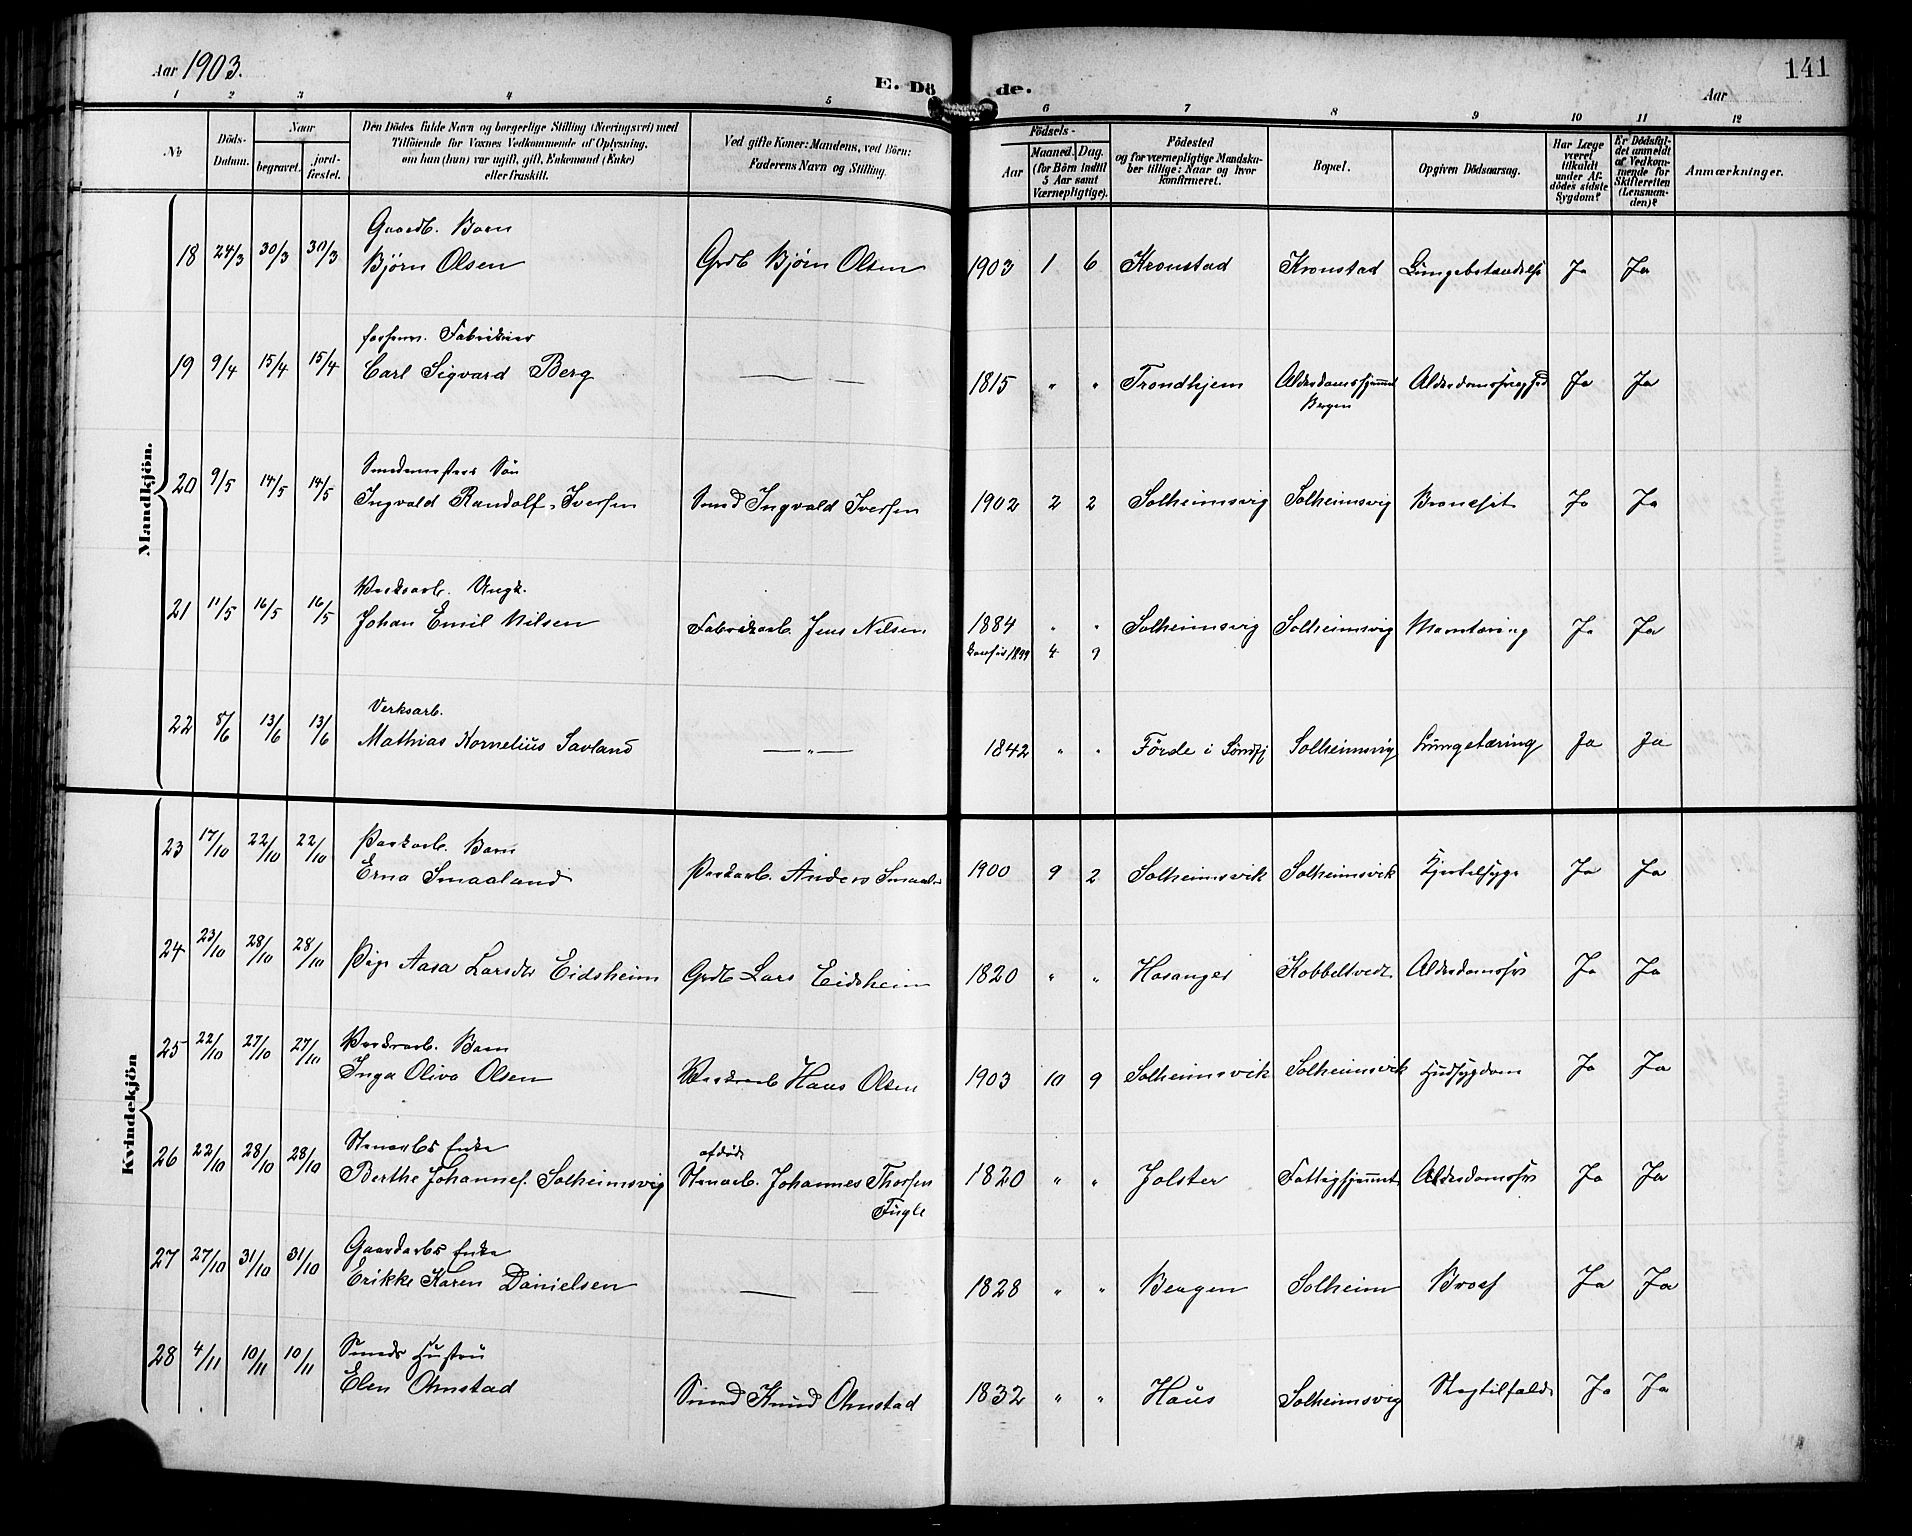 Aar 1903.
E. Dö de.
141
Aar
1 2 3 4 5 6 7 8 9 10 11 12
No
Döds-
Datum.
Naar
begravet.
jord-
fæstet.
Den Dödes fulde Navn og borgerlige Stilling (Næringsvei) med
Tilföiende for Voxnes Vedkommende af Oplysning,
om han (hun) var ugift, gift, Enkemand (Enke)
eller fraskilt.
Ved gifte Koner: Mandens, ved Börn:
Faderens Navn og Stilling.
Födsels-
Aar
Maaned. Dag.
(for Börn indtil
5 Aar samt
Værnepligtige).
Födested
og for værnepligtige Mandska-
ber tillige: Naar og hvor
konfirmeret.
Bopæl.
Opgiven Dödsaarsag.
Har Læge
været
tilkaldt
under Af-
dödes sidste
Sygdom?
Er Dödsfal-
det anmeldt
af Vedkom-
mende for
Skifteretten
(Lensman-
den)?
Anmærkninger.
Mandkjön.
Gaardb. Barn
18 24/3 30/3 30/3 Bjørn Olsen Grdb Bjørn Olsen 1903 1 6 Kronstad Kronstad Lungebetændelse Ja Ja
forhenv. Fabrikeier
19 9/4 15/4 15/4 Carl Sigvard Berg — — 1815 " " Trondhjem Alderdomshjemmet Ja Ja
Bergen
Smedemesters Søn
20 9/5 14/5 14/5 Ingvald Randolf Iversen Smed Ingvald Iversen 1902 2 2 Solheimsvig Solheimsvig Ja Ja
Verksarb. Ungk.
21 11/5 16/5 16/5 Johan Emil Nilsen Fabrikarb. Jens Nilsen 1884 " " Solheimsvig Solheimsvig Ja Ja
konfir 1899 4 9
Verksarb.
22 8/6 13/6 13/6 Mathias Kornelius Savland — " — 1842 " " Förde i Söndfj Solheimsvig Lungetæring Ja Ja
Kvindekjön
Barn
23 17/10 22/10 22/10 Erna Smaaland Anders Smaal 1900 9 2 Solheimsvik Solheimsvik Kjertelsyge Ja Ja
24 23/10 28/10 28/10 Pige Aasa Larsdtr Eidsheim Grdb Lars Eidsheim 1820 " " Hosanger Kobbeltvedt Ja Ja
Verksarb. Barn
25 22/10 27/10 27/10 Inga Oliva Olsen Verksarb Hans Olsen 1903 10 9 Solheimsvik Solheimsvik Hudsygdom Ja Ja
Stenarbs Enke afdöde
26 22/10 28/10 28/10 Berthe Johannes. Solheimsvig Stenarb. Johannes Thorsen 1820 " " Jolster Fattighjemmet Ja Ja
Fugle
Gaardarbs Enke
27 27/10 31/10 31/10 Erikke Karen Danielsen — — 1828 " " Bergen Solheim Ja Ja
Smeds Hustru
28 4/11 10/11 10/11 Elen Omstad Smed Knud Omstad 1832 " " Haus Solheimsvig Slagtilfælde Ja Ja